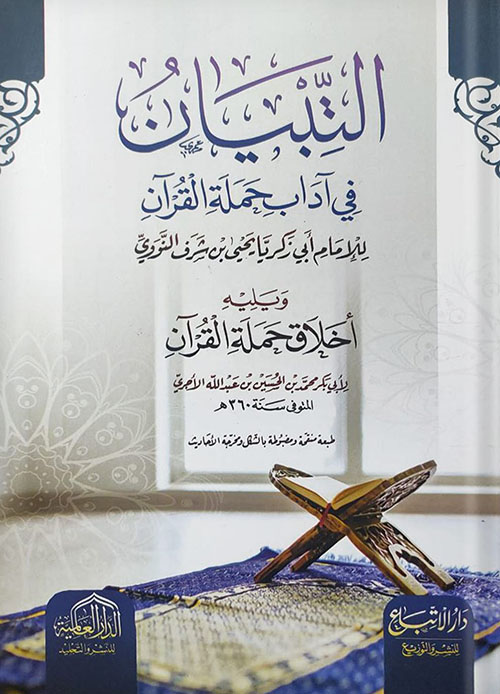 التِّبْيَانُ
فِي آدَابِ حَمَلَةِ القُرْآنِ
لِلإِمَامِ أَبِي زَكَرِيَّا يَحْيَى بْنِ شَرَفِ النَّوَوِيِّ
وَيَلِيهِ
أَخْلَاقُ حَمَلَةِ القُرْآنِ
لِأَبِي بَكر محمّد بْن الحُسَيْن بْن عَبْد الله الآجرِيّ
المتوفى سَنَة ٣٦٠هـ
طبعة منقحة ومضبوطة بالشكل ومخرجة الأحاديث
دَارُ الإتباع
للنشر والتوزيع
الدار العالمية
للنشر والتجليد